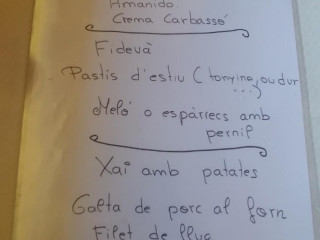 Amanido
Crema Carbassó
Fidevà
Pastis d'estiu (tonyina, ou dur
...)
Meló o espàrrecs amb
pernil
Xai amb patates
Galta de porc al forn
Filet de lluç